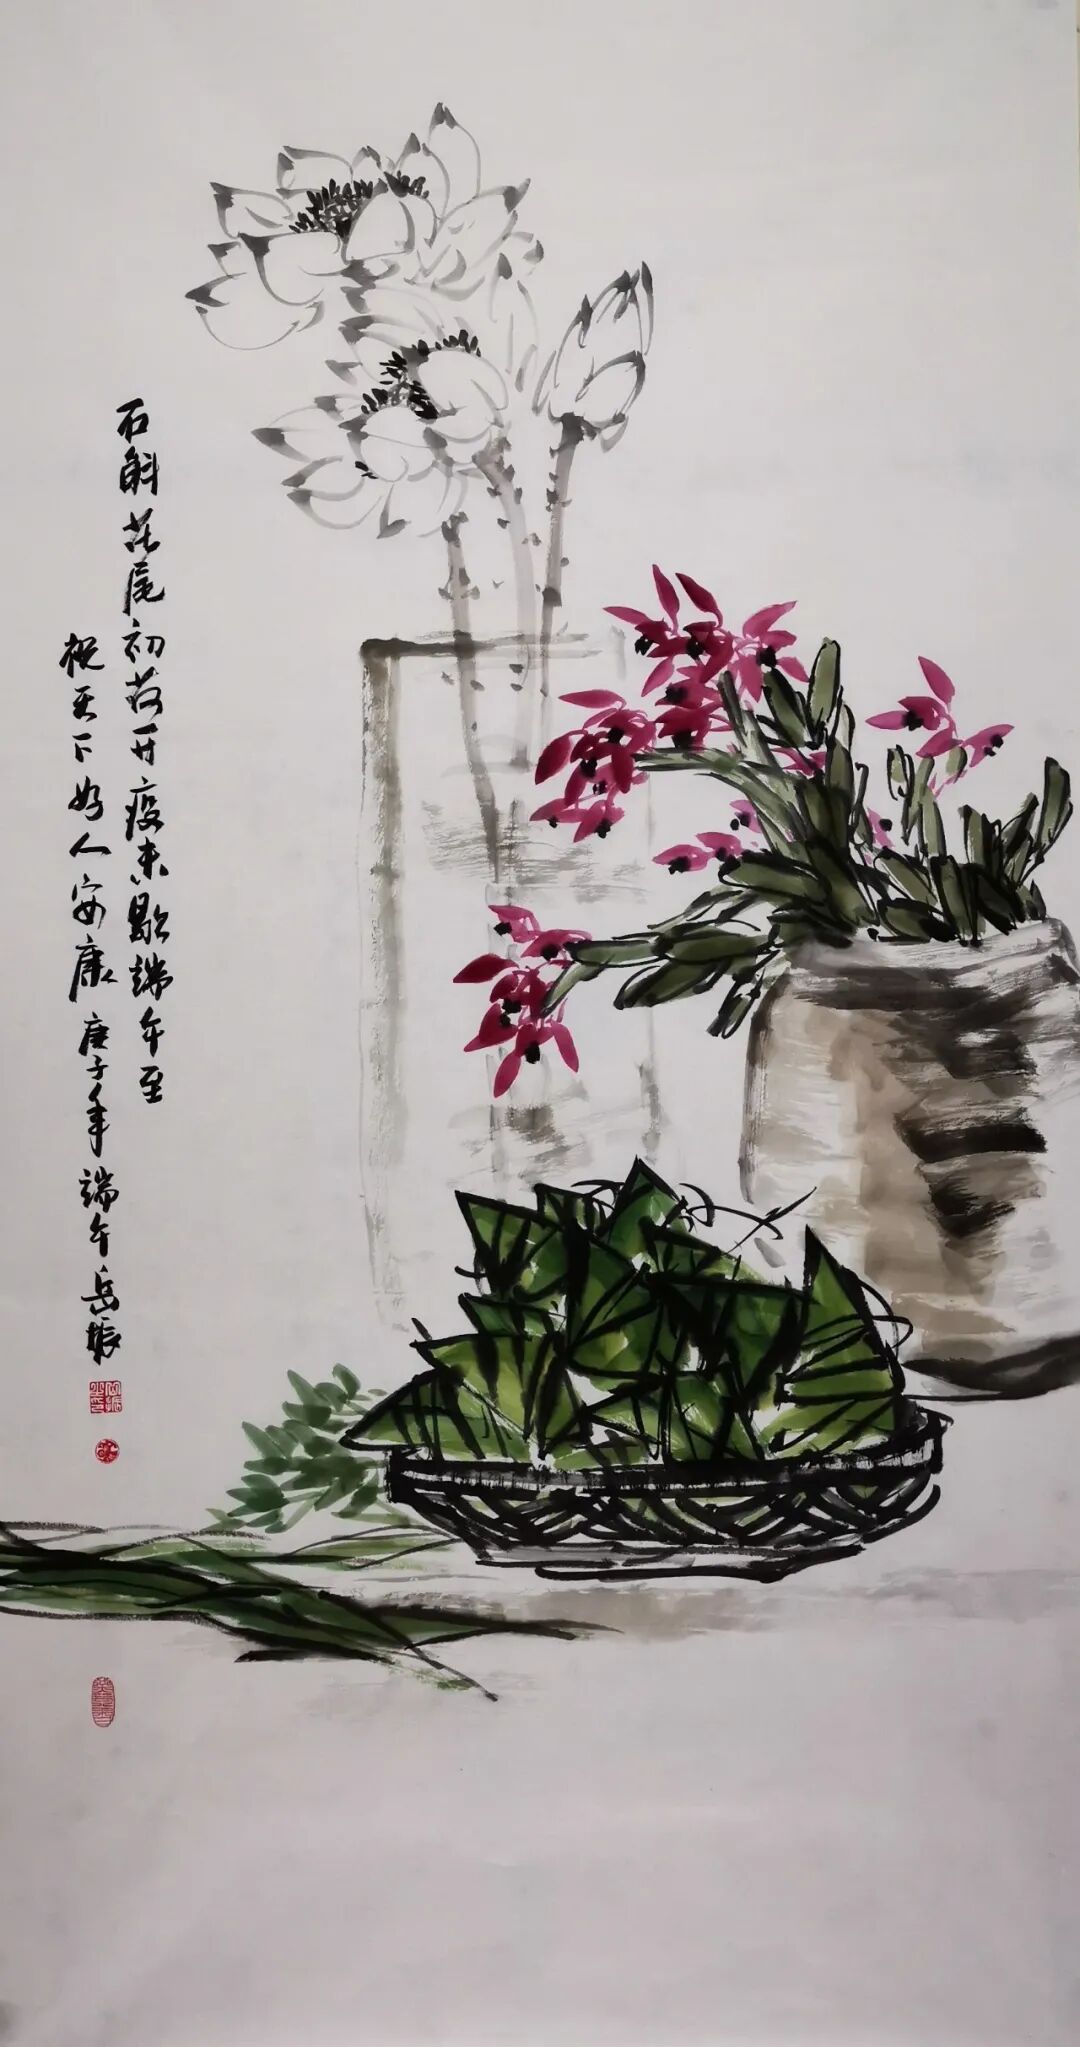 石斛花尾初荷开疫未歇端午至
祝天下好人安康庚子年端午岳振